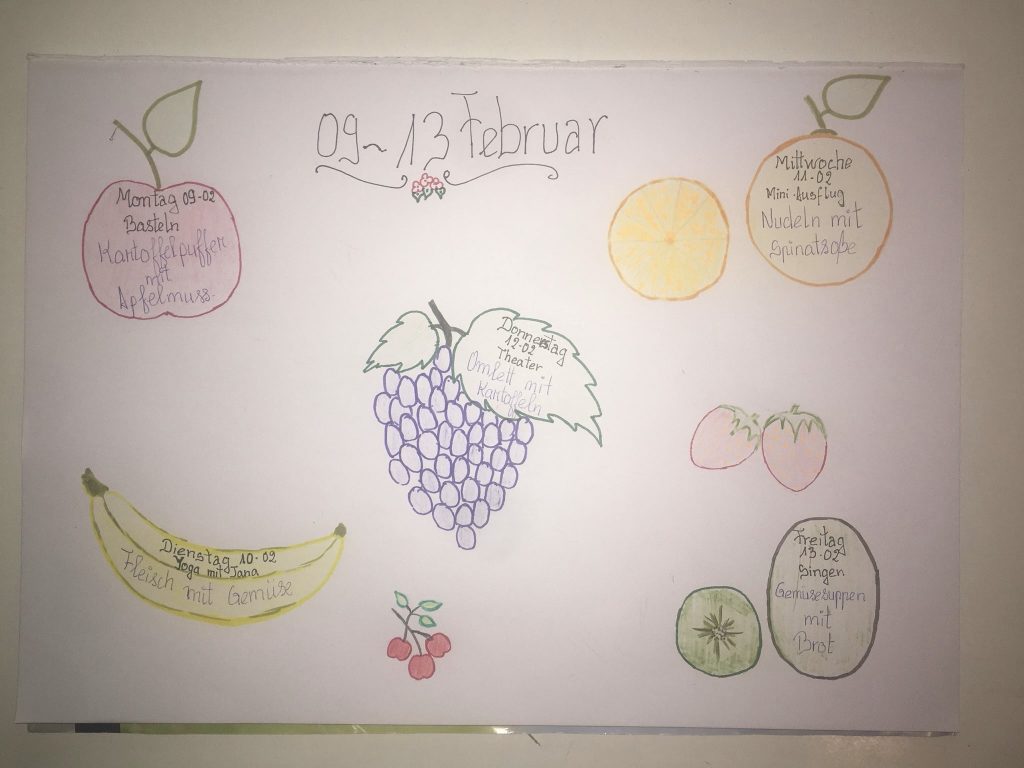 09~13 Februar
Montag 09-02
Basteln
Kartoffelpuffer
mit
Apfelmuss.
Mittwoche
11-02
Mini-Ausflug
Nudeln mit
Spinatsoße
Donnerstag
12-02
Theater
Omlett mit
Kartoffeln
Dienstag 10-02
Yoga mit Jana
Fleisch mit Gemüse
Freitag
13-02
Singen
Gemüsesuppen
mit
Brot